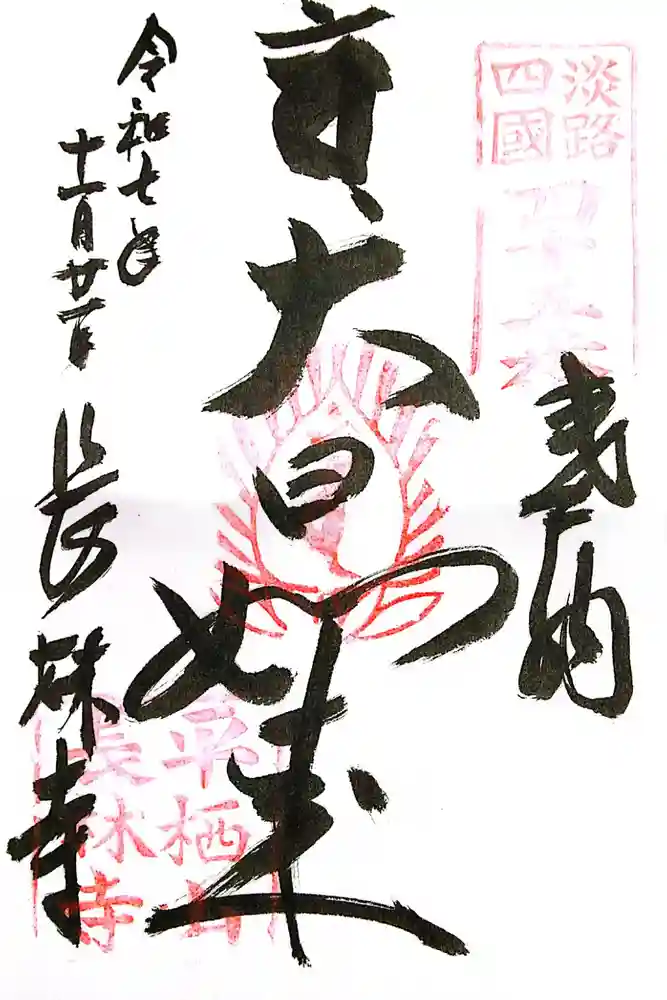 淡路
四國
奉納
大日如来
令和七年
十一月廿一日
長林寺
平栖山
長林寺